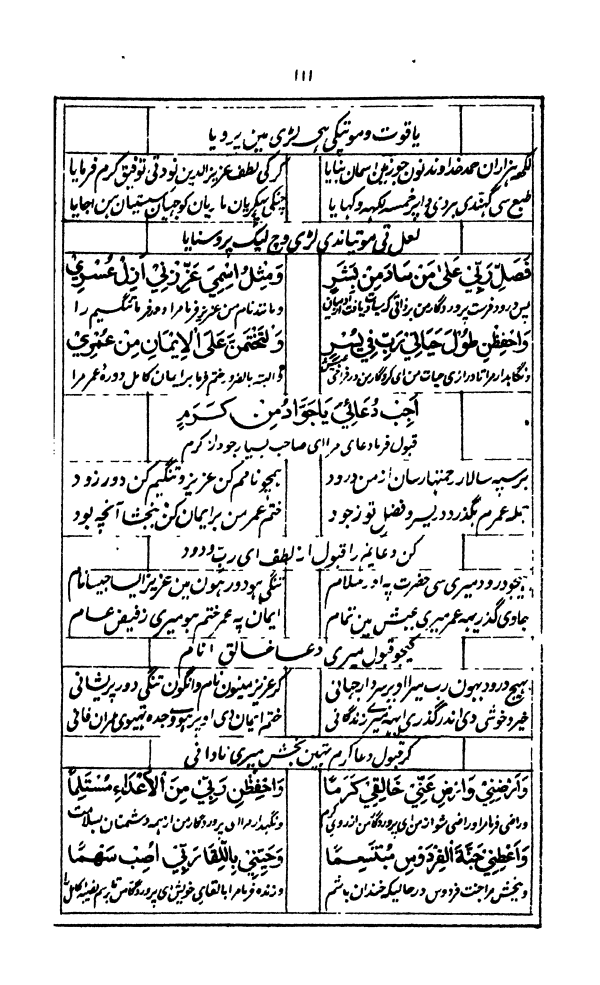 ۱۱۱
یاقوت و موتیکی ہی لڑی مین پرویا
لکھ ہزاران حمد خداوند نون جو زمین اسمان بنایا کرکی لطف عزیزالدین نو دتی توفیق کرم فرمایا
طبع سی گہندی بردی خمسہ لکہہ وکہایا
لعل تی موتیاندی لڑی وچ لیک پروسنایا
فَصَلِّ رَبِّيْ عَلٰى مَنْ سَادَ مِنْ بَشَرٍ وَمِثْلُ اسْمِيْ عَزِّزْنِيْ اَزِلْ عُسْرِيْ
پس درود فرست پروردگار من و مانند نام من عزیز فرما مرا و دور فرما تنگیم را
وَاحْفَظْنِ طُوْلَ حَيَاتِيْ رَبِّ فِيْ يُسْرٍ وَلْتَخْتِمَنَّ عَلَى الْاِيْمَانِ مِنْ عُمْرِيْ
و نگاہدار مرا تا درازی حیات من ای پروردگار من در فراخی و البتہ بالضرور ختم فرما بر ایمان کامل دورہ عمر مرا
اَجِبْ دُعَائِيْ يَا جَوَّادُ مِنْ كَرَمٍ
قبول فرما دعای مرا ای صاحب بسیار جود از کرم
بر سپہ سالار رحمتہا رسان از من درود ہمچو نامم کن عزیز و تنگیم کن دور زود
جملہ عمرم بگذرد در یسر و فضل تو ز جود ختم عمر من بر ایمان کن بخشش آنچہ بود
کن دعایم را قبول از لطف ای رب ودود
بہیجو درود میری سی حضرت پہ اور سلام تنگی ہو دور ہون مین عزیز ایسا جیسا نام
جاوی گذر یہہ عمر میری عیش مین تمام ایمان پہ عمر ختم ہو میری ز فیض عام
کیجو قبول میری دعا خالق انام
بہیج درود بہون رب میرا او پر سردار جہانی کر عزیز مینون نام وانگون تنگی دور پریشانی
خیر و خوشی دی اندر گذری زندگانی ختم ایمان دی اوپر ہووی عمران فانی
کر قبول دعا کرم تہین بخش میری نادانی
وَارْضِنِيْ وَارْضَ عَنِّيْ خَالِقِيْ كَرَمًا وَاحْفَظْنِ رَبِّيْ مِنَ الْاَعْدَاءِ مُسْتَلِمًا
و راضی فرما مرا و راضی شو از من ای پروردگار من از روی کرم و نگہدار مرا ای پروردگار من از ہمہ دشمنان بسلامت
وَاَعْطِنِيْ جَنَّةَ الْفِرْدَوْسِ مُبْتَسِمًا وَحَيِّنِيْ بِاللِّقَا رَبِّيْ اُصِبْ سَهْمًا
و ببخش مرا جنت فردوس در حالیکہ خندان باشم و زندہ فرما مرا با لقای خویش ای پروردگار من تا برسم نصیبہ کامل را